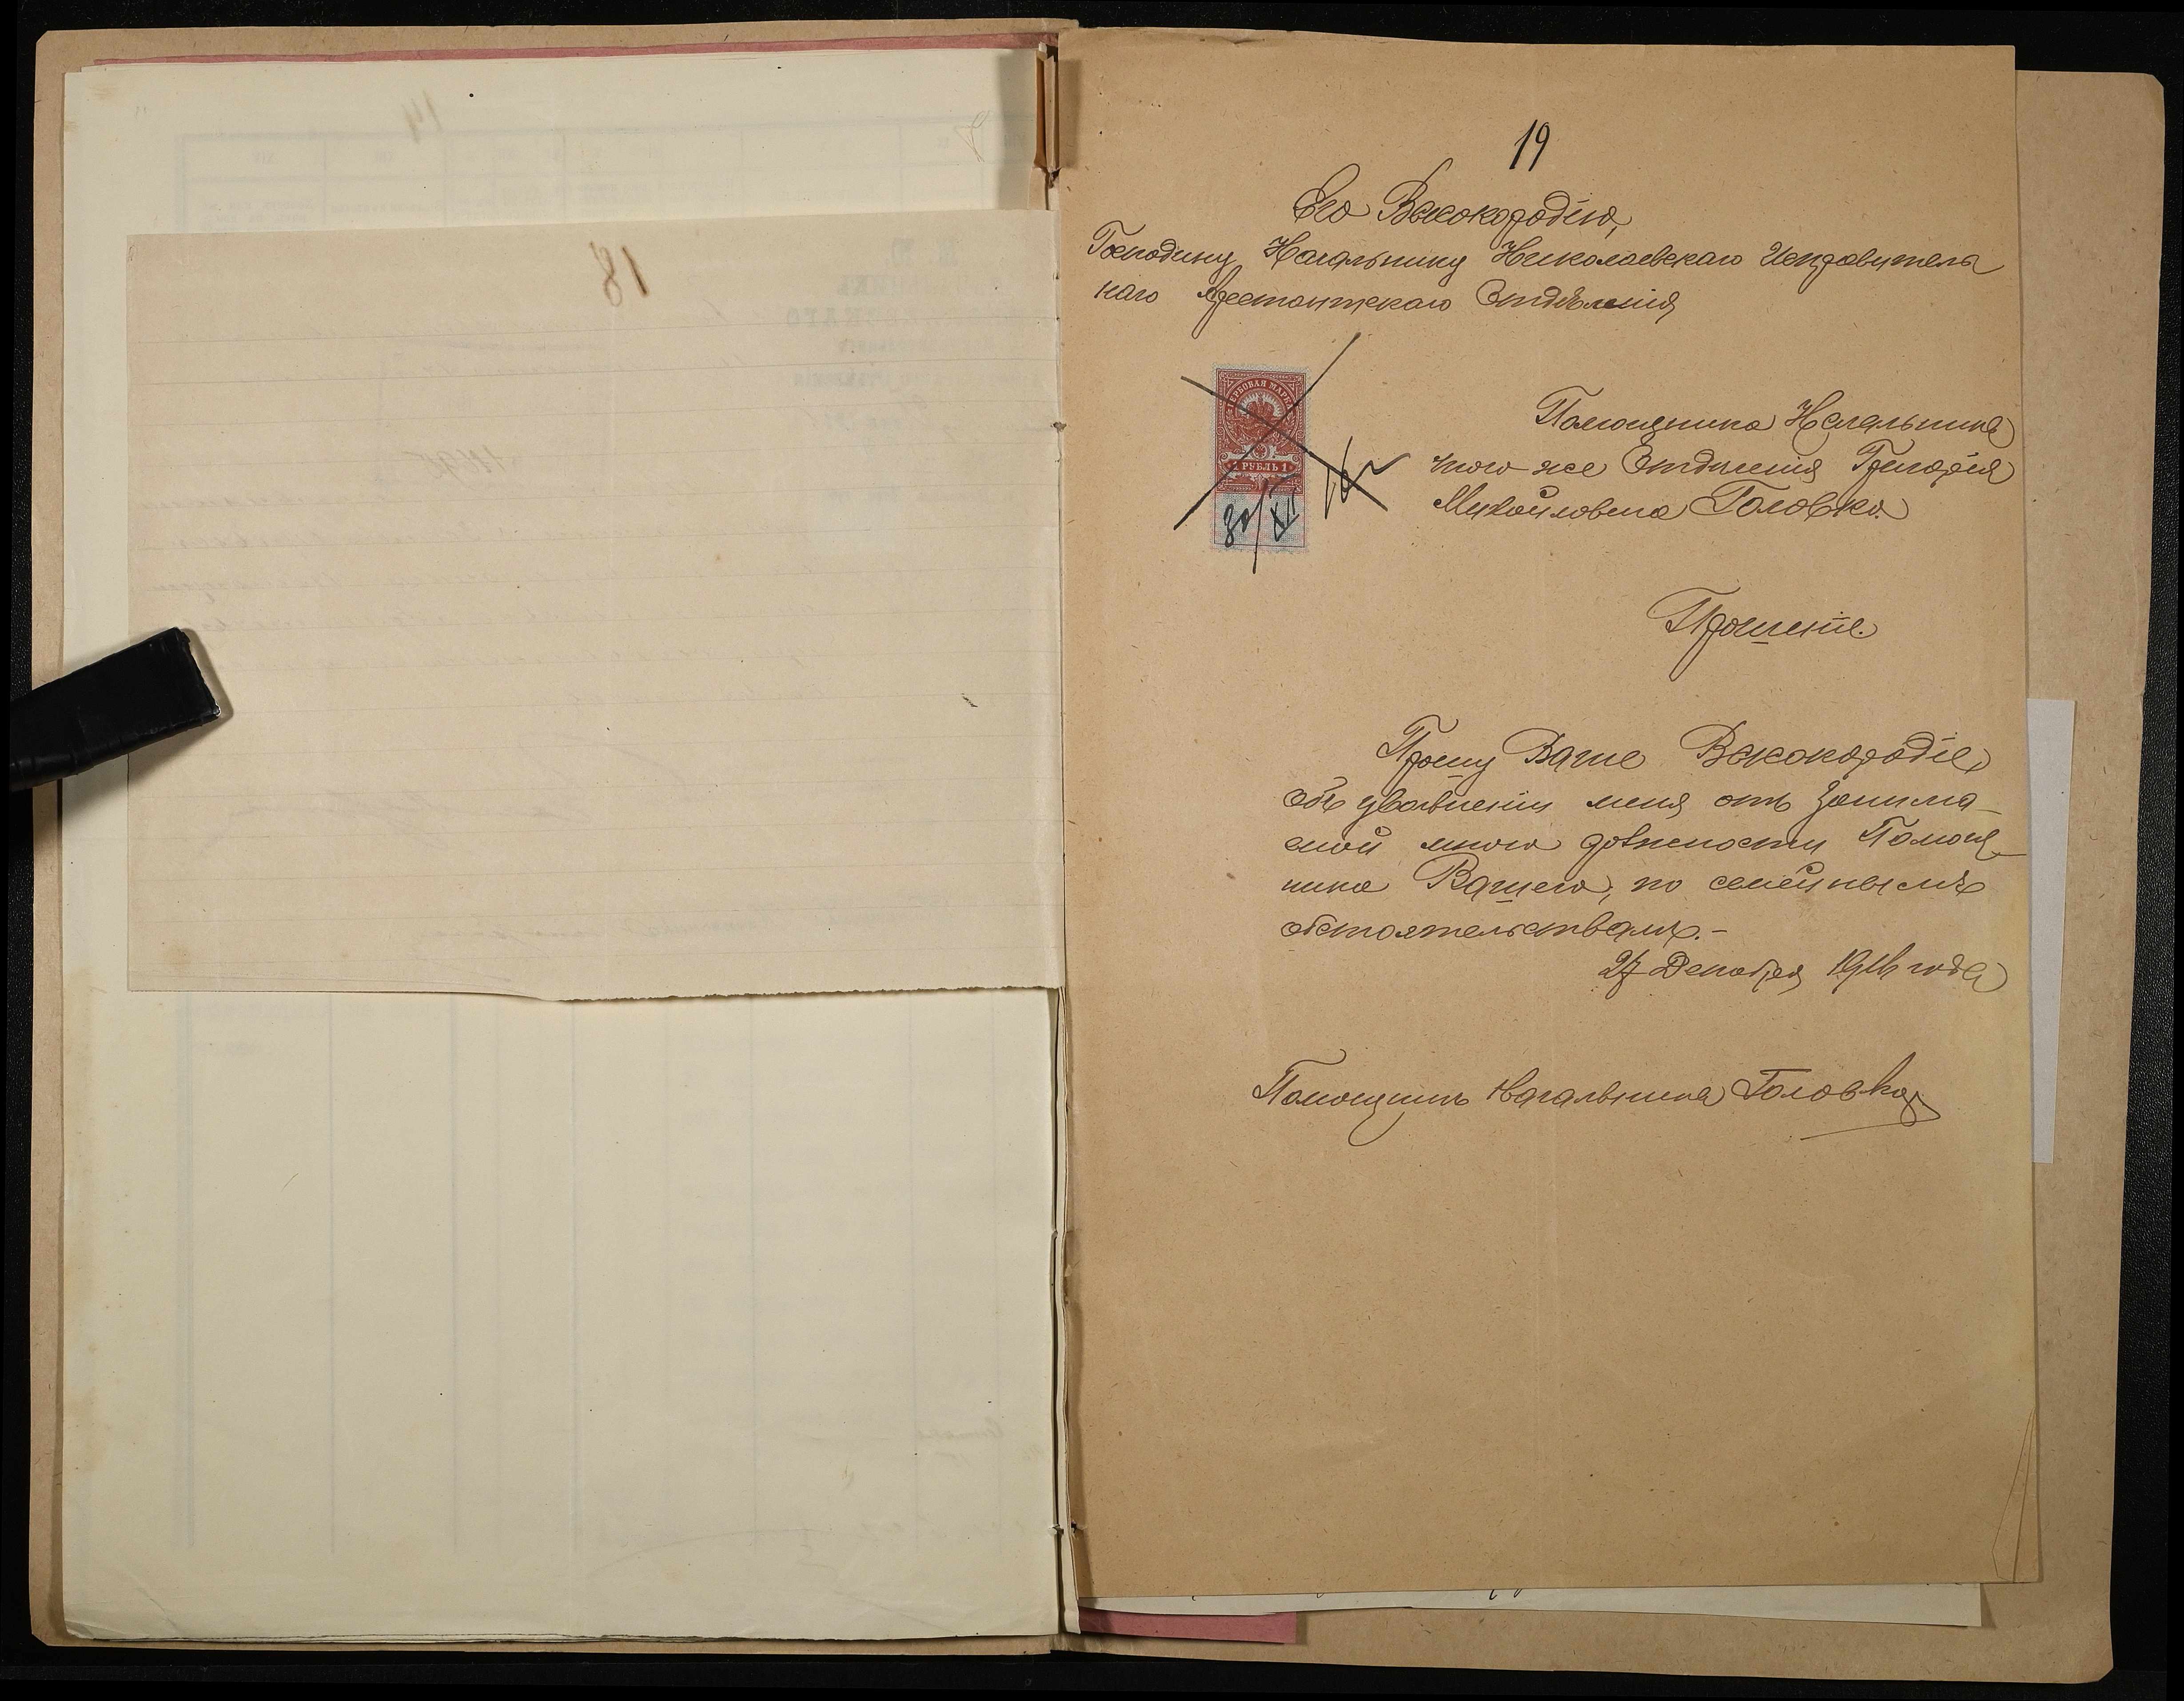 18
19
Его Высокородію,
Господину Начальнику Николаевскаго Исправитель
наго Арестантскаго Отдѣленія
ГЕРБОВАЯ МАРКА
1 РУБЛЬ 1
30/XII 16 г
Помощника Начальника
того-же Отдѣленія Григорія
Михайловича Головко.
Прошеніе.
Прошу Ваше Высокородіе,
объ увольненіи меня отъ занима-
емой мною должности Помощ-
ника Вашего, по семейнымъ
обстоятельствамъ.-
27 Декабря 1916 года
Помощникъ Начальника Головко